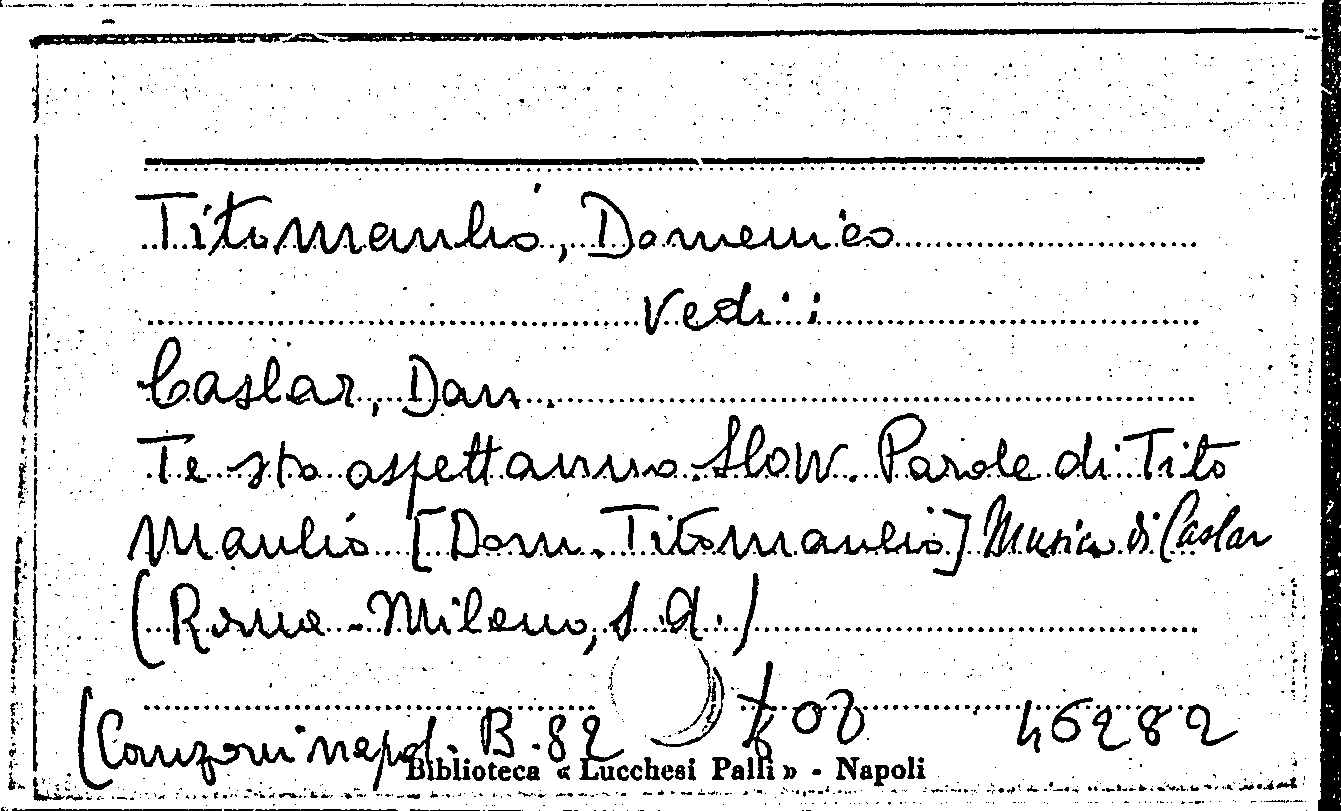 Titomanlio, Domenico
vedi:
Caslar, Dan.
Te sto aspettanno. Slow. Parole di Tito
Manlio [Dom. Titomanlio] Musica di Caslar
(Roma - Milano, s.d.)
(Canzoni napol. B. 82 46282
Biblioteca « Lucchesi Palli » - Napoli